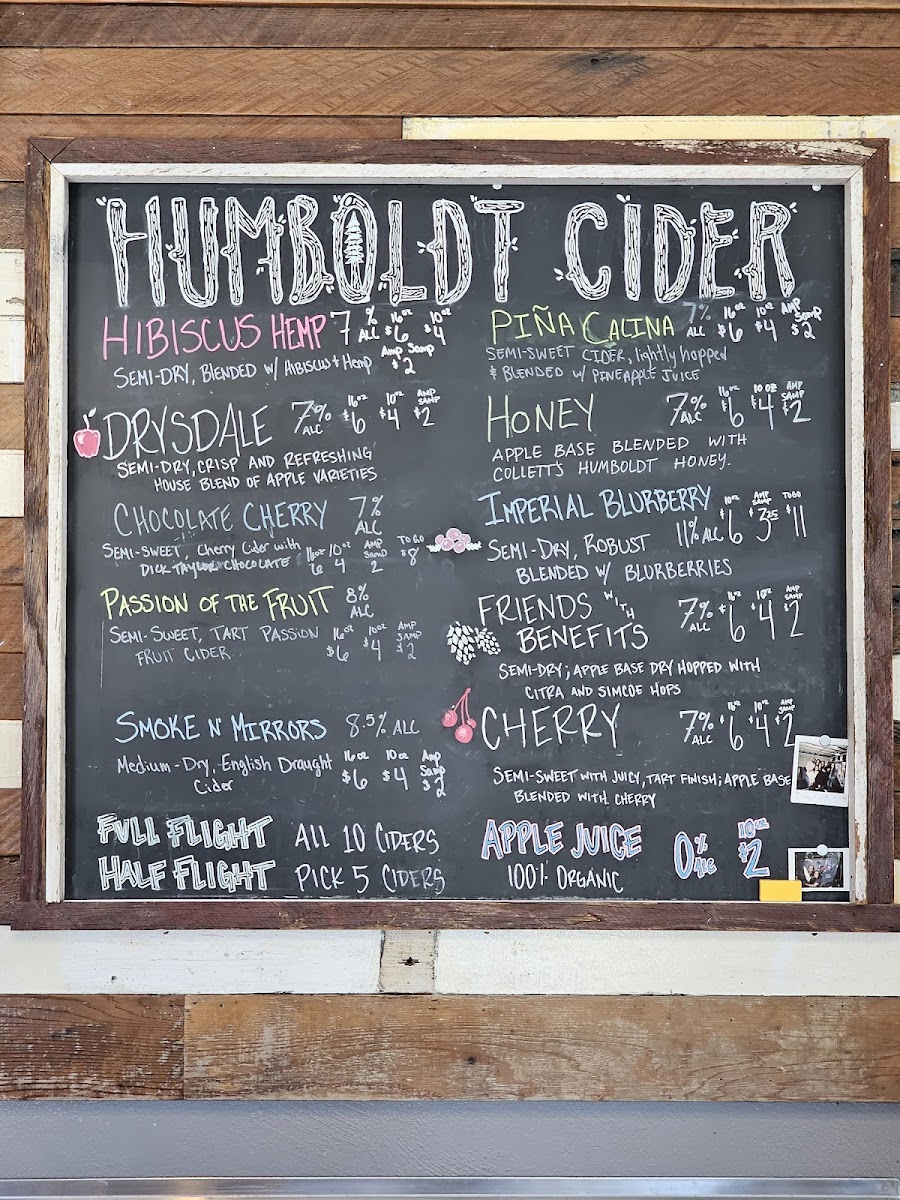 HUMBOLDT CIDER
HIBISCUS HEMP 7% ALC 16oz $6 10oz $4
AMP SAMP $2
SEMI-DRY, BLENDED W/ HIBISCUS + HEMP
DRYSDALE 7% ALC 16oz $6 10oz $4 AMP SAMP $2
SEMI-DRY, CRISP AND REFRESHING
HOUSE BLEND OF APPLE VARIETIES
CHOCOLATE CHERRY 7% ALC
SEMI-SWEET, Cherry Cider with
DICK TAYLOR CHOCOLATE 16oz 6 10oz 4 AMP SAMP 2 TO GO $8
PASSION OF THE FRUIT 8% ALC
SEMI-SWEET, TART PASSION
FRUIT CIDER 16oz $6 10oz $4 AMP SAMP $2
SMOKE N' MIRRORS 8.5% ALC
Medium-Dry, English Draught
Cider 16oz $6 10oz $4 Amp Samp $2
FULL FLIGHT ALL 10 CIDERS
HALF FLIGHT PICK 5 CIDERS
PIÑA CALINA 7% ALC 16oz $6 10oz $4 AMP SAMP $2
SEMI-SWEET CIDER, lightly hopped
& BLENDED W/ PINEAPPLE JUICE
HONEY 7% ALC 16oz $6 10oz $4 AMP SAMP $2
APPLE BASE BLENDED WITH
COLLETT'S HUMBOLDT HONEY.
IMPERIAL BLURBERRY 11% ALC 10oz $6 AMP SAMP $3.25 TO GO $11
SEMI-DRY, ROBUST
BLENDED W/ BLURBERRIES
FRIENDS WITH
BENEFITS 7% ALC 16oz $6 10oz $4 AMP SAMP $2
SEMI-DRY; APPLE BASE DRY HOPPED WITH
CITRA AND SIMCOE HOPS
CHERRY 7% ALC 16oz $6 10oz $4 AMP SAMP $2
SEMI-SWEET WITH JUICY, TART FINISH; APPLE BASE
BLENDED WITH CHERRY
APPLE JUICE 0% ALC 10oz $2
100% ORGANIC